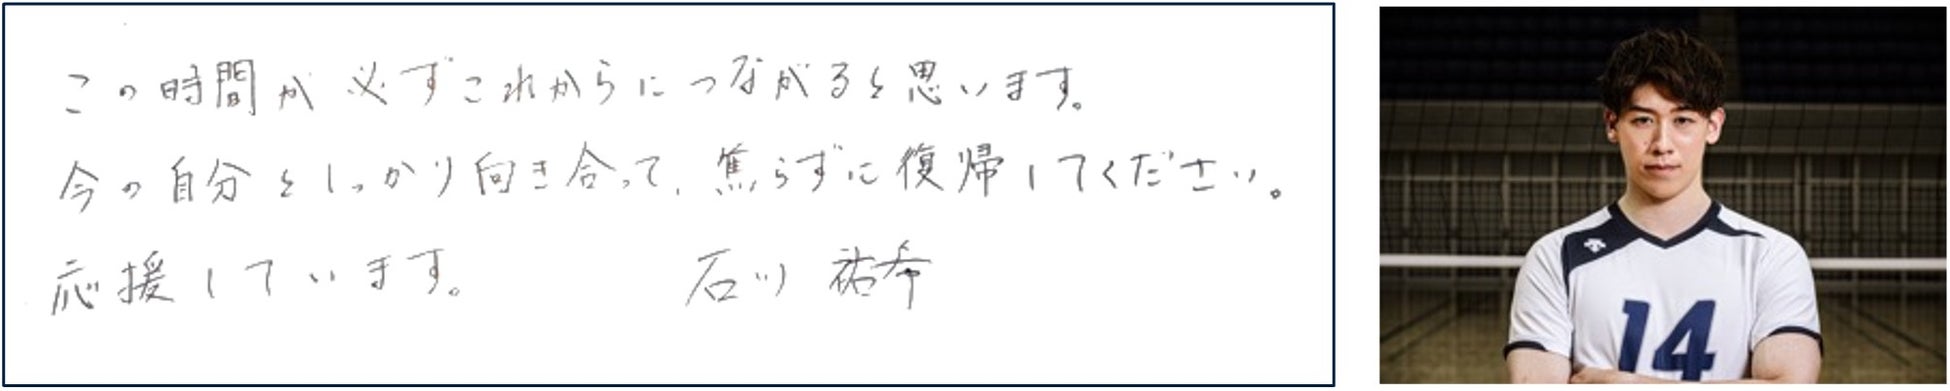 この時間が必ずこれからにつながると思います。
今の自分としっかり向き合って、焦らずに復帰してください。
応援しています。 石川 祐希
14